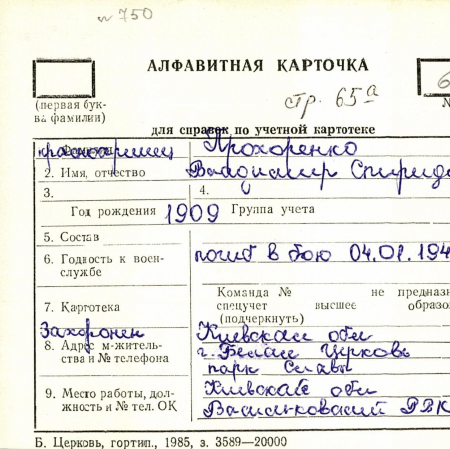 № 750
АЛФАВИТНАЯ КАРТОЧКА
(первая бук-
ва фамилии)
стр. 65а
6
№
для справок по учетной картотеке
красноармеец Прохоренко
2. Имя, отчество Владимир Спирид
3. 4.
Год рождения 1909 Группа учета
5. Состав
6. Годность к воен-
службе
погиб в бою 04.01.194
7. Картотека
Команда № не предназн
спецучет высшее образо
(подчеркнуть)
Захоронен Киевская обл
8. Адрес м-житель-
ства и № телефона
г. Белая Церковь
парк Славы
9. Место работы, дол-
жность и № тел. ОК
Киевская обл
Васильковский РВК
Б. Церковь, гортип., 1985, з. 3589—20000